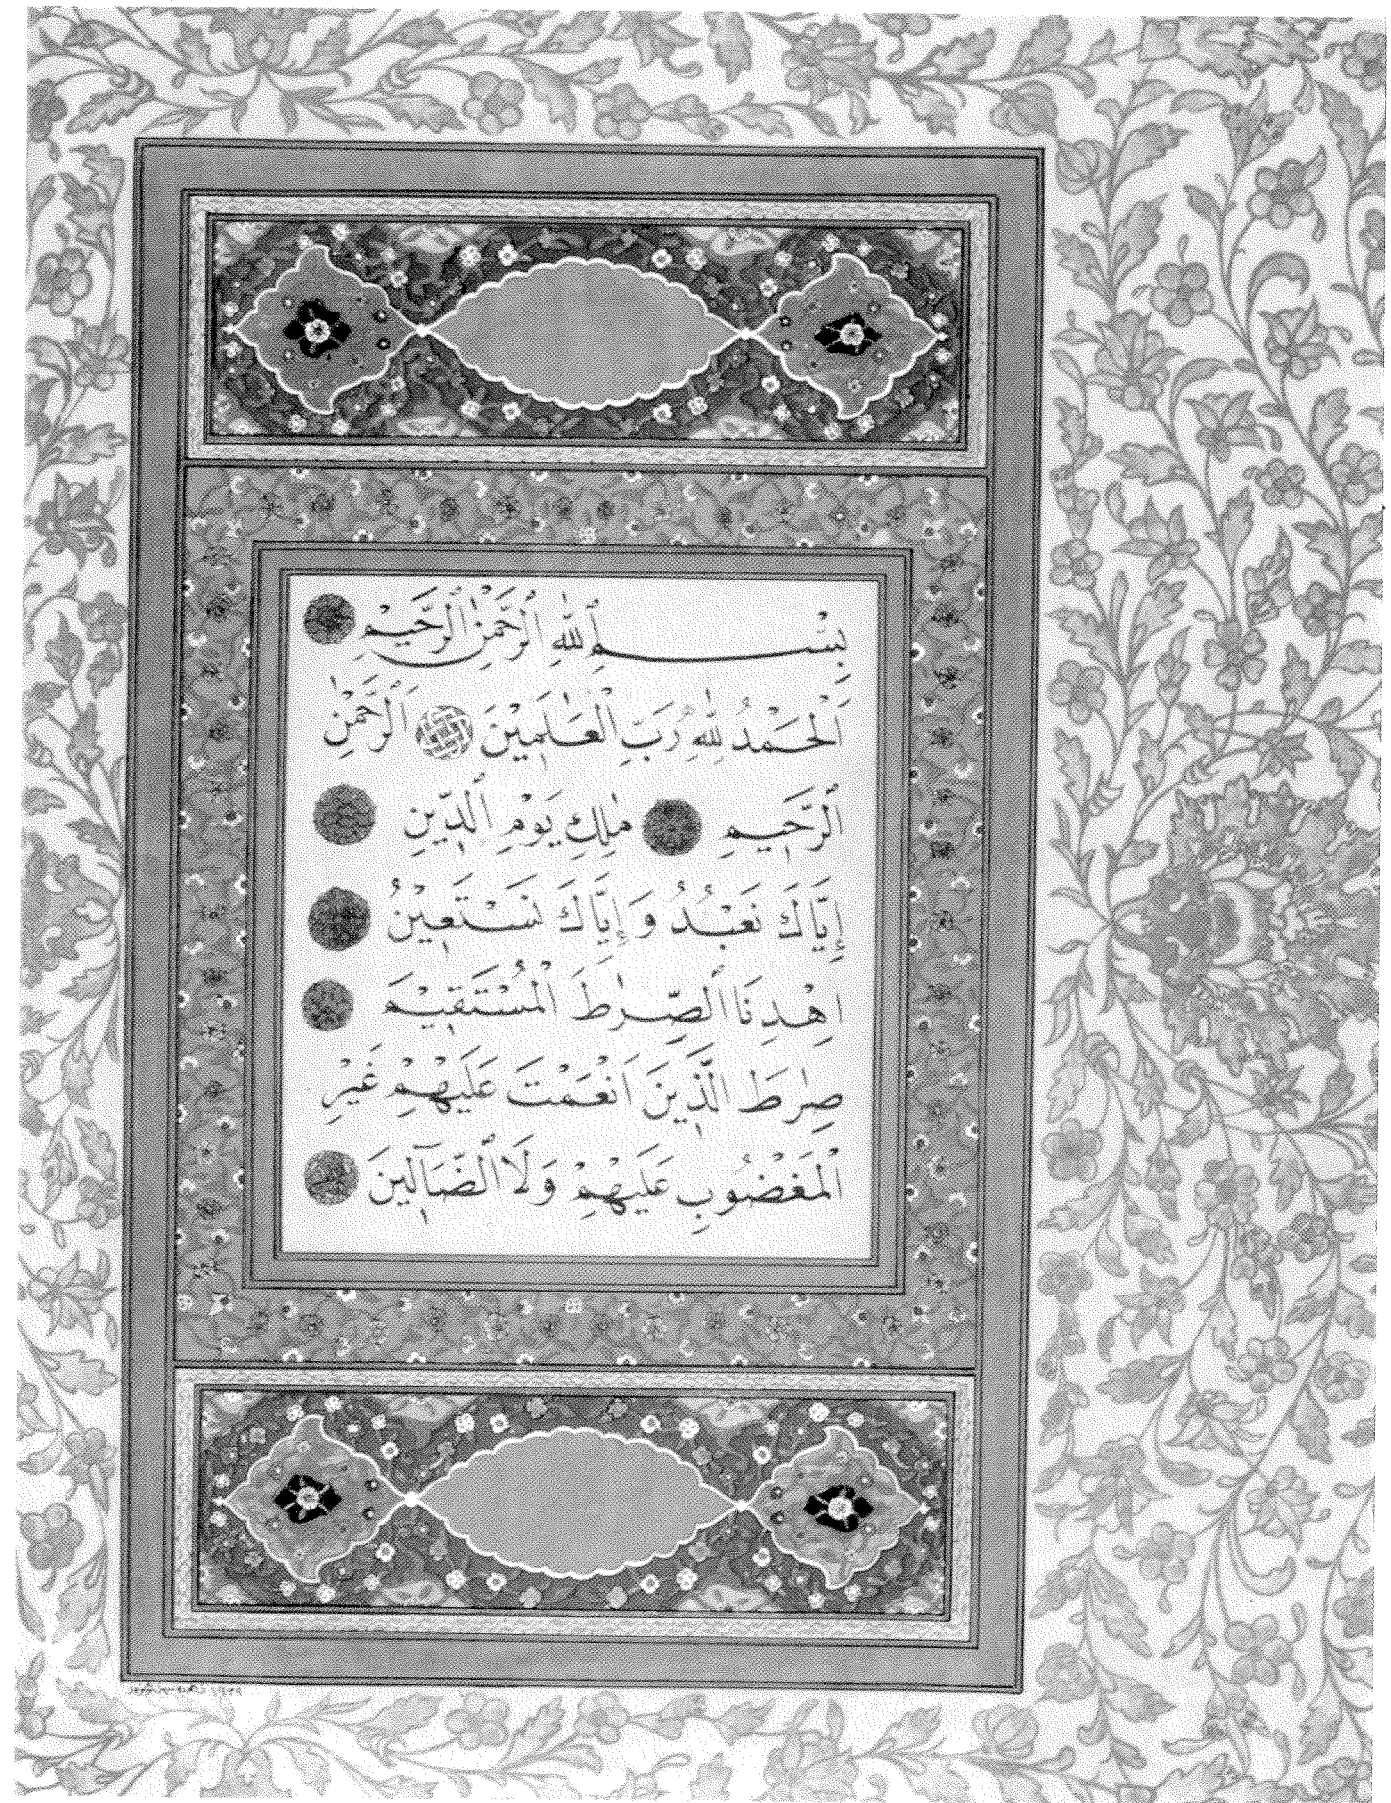 بِسْمِ ٱللَّهِ ٱلرَّحْمٰنِ ٱلرَّحِيمِ
اَلْحَمْدُ لِلّٰهِ رَبِّ الْعَالَمِيْنَ اَلرَّحْمٰنِ
ٱلرَّحِيمِ مٰلِكِ يَوْمِ ٱلدِّينِ
إِيَّاكَ نَعْبُدُ وَ إِيَّاكَ نَسْتَعِيْنُ
اهْدِنَا ٱلصِّرٰطَ الْمُسْتَقِيْمَ
صِرٰطَ الَّذِينَ اَنْعَمْتَ عَلَيْهِمْ غَيْرِ
ٱلْمَغْضُوبِ عَلَيْهِمْ وَلَا ٱلضَّآلِينَ